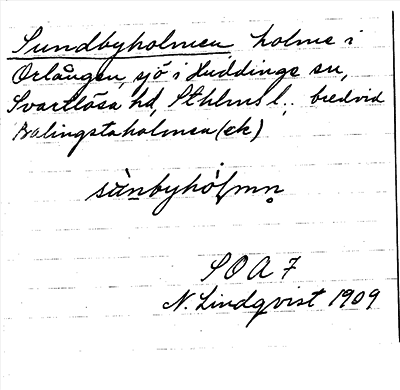 Sundbyholmen holme i
Orlången, sjö i Huddinge sn,
Svartlösa hd, Sthlms l.; bredvid
Balingstaholmen (ek)
sùnbyhòlmn̥
SOA 7
N. Lindqvist 1909